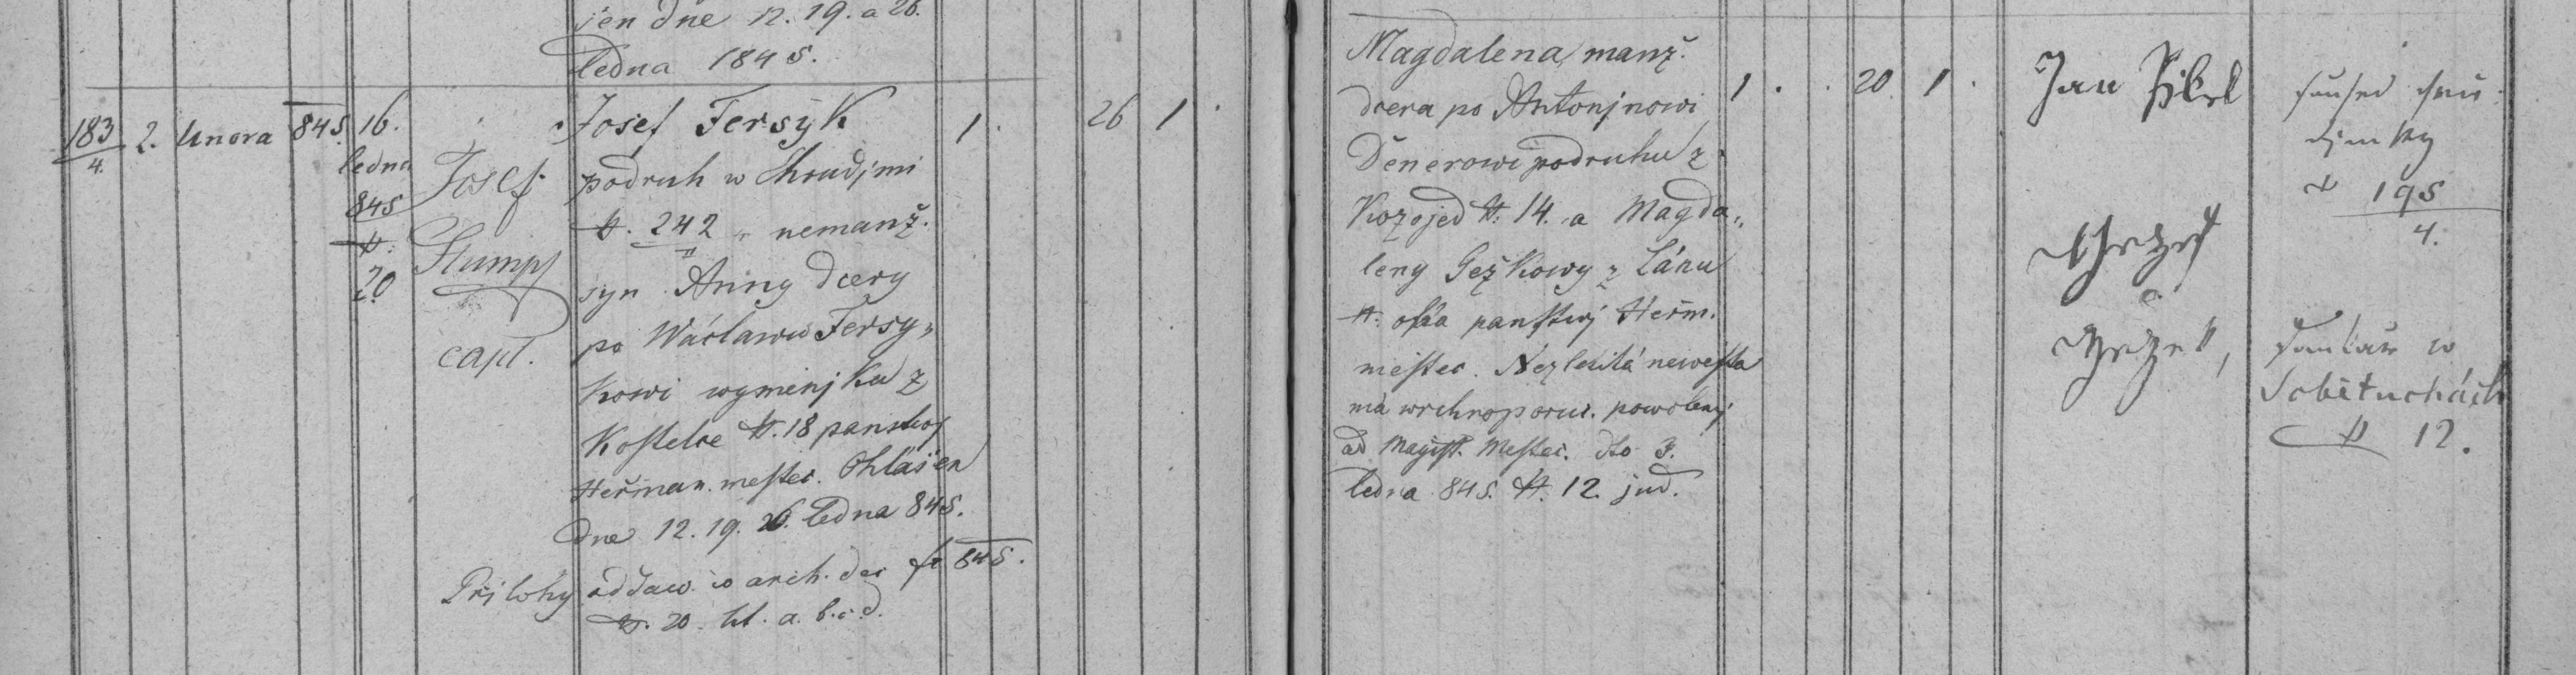 jen dne 12. 19. a 26.
ledna 1845.
183/4. 2. Unora 845.
16.
ledna
845
N:
20
Josef
Stumpf
capl.
Josef Fersyk
podruh w Chrudjmi
N. 242 nemanž.
syn Anny dcery
po Wáclawu Fersy„
kowi wyměnjku z
Kostelce N. 18 panstwj
Heřman. mestec. Ohlášen
dne 12. 19. 26. ledna 845.
Přjlohy oddaw. w arch. dec fo 845.
N. 20. lit. a. b. c. d.
1. 26 1.
Magdalena, manž.
dcera po Antonjnowi
Děnerowi podruhu z
Kozojed N. 14. a Magda„
leny Gežkowy z Lánu
N: panstwj Heřm.
městec. Nezletilá newěsta
má wrchnoporuč. powolenj
od Magist. Mestec. dto 3.
ledna 845. N. 12. jud.
1. 20. 1.
Jan
saused chru
djmský
N 195/4.
w
Sobětuchách
N 12.